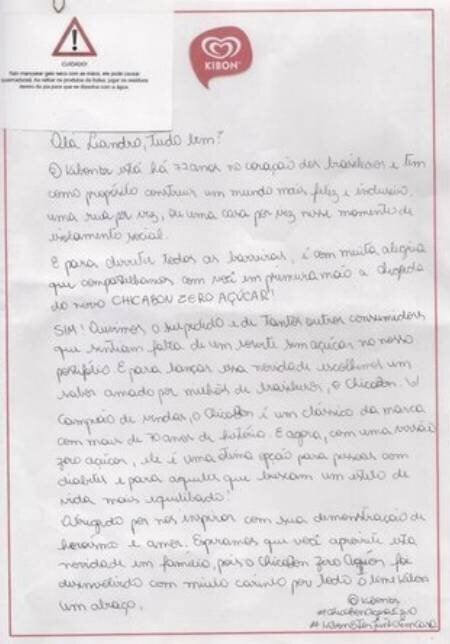 CUIDADO!
Não manusear gelo seco com as mãos, ele pode causar
queimaduras. Ao retirar os produtos da bolsa, jogar os resíduos
dentro da pia para que se dissolva com a água.
KIBON
Olá Liandro, tudo bem?
@Kibonbr está há 77 anos no coração dos brasileiros e tem
como propósito construir um mundo mais feliz e inclusivo,
uma rua por vez, ou uma casa por vez nesse momento de
isolamento social.
E para derreter todas as barreiras, é com muita alegria
que compartilhamos com você em primeira mão a chegada
do novo CHICABON ZERO AÇÚCAR!
SIM! Ouvimos o seu pedido e de tantos outros consumidores
que sentiam falta de um sorvete sem açúcar no nosso
portfólio. E para lançar essa novidade escolhemos um
sabor amado por milhões de brasileiros, o ChicaBon.
Campeão de vendas, o ChicaBon é um clássico da marca
com mais de 70 anos de história. E agora, com uma versão
zero açúcar, ele é uma ótima opção para pessoas com
diabetes e para aqueles que buscam um estilo de
vida mais equilibrado!
Obrigado por nos inspirar com sua demonstração de
heroísmo e amor. Esperamos que você aproveite esta
novidade em família, pois o ChicaBon Zero Açúcar foi
desenvolvido com muito carinho por todo o time Kibon
um abraço,
@Kibonbr